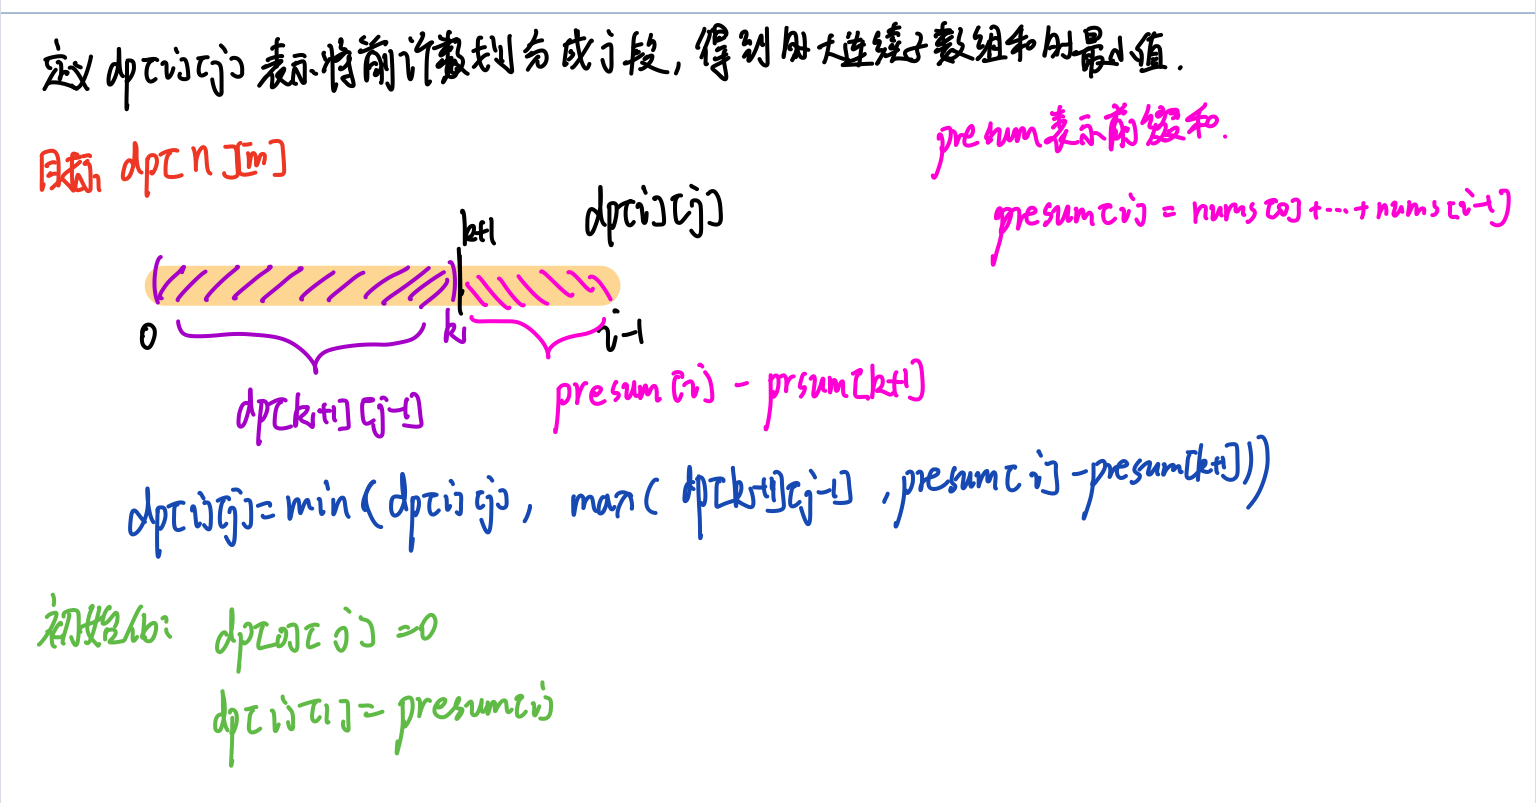 定义 dp[i][j] 表示将前i个数划分成j段,得到的大连续子数组和的最小值.
presum表示前缀和.
目标 dp[n][m]
presum[i] = nums[0]+...+nums[i-1]
dp[i][j]
k+1
0
k
i-1
dp[k+1][j-1]
presum[i] - prsum[k+1]
dp[i][j]=min(dp[i][j], max(dp[k+1][j-1],presum[i]-presum[k+1]))
初始化:
dp[0][j]=0
dp[i][1]=presum[i]